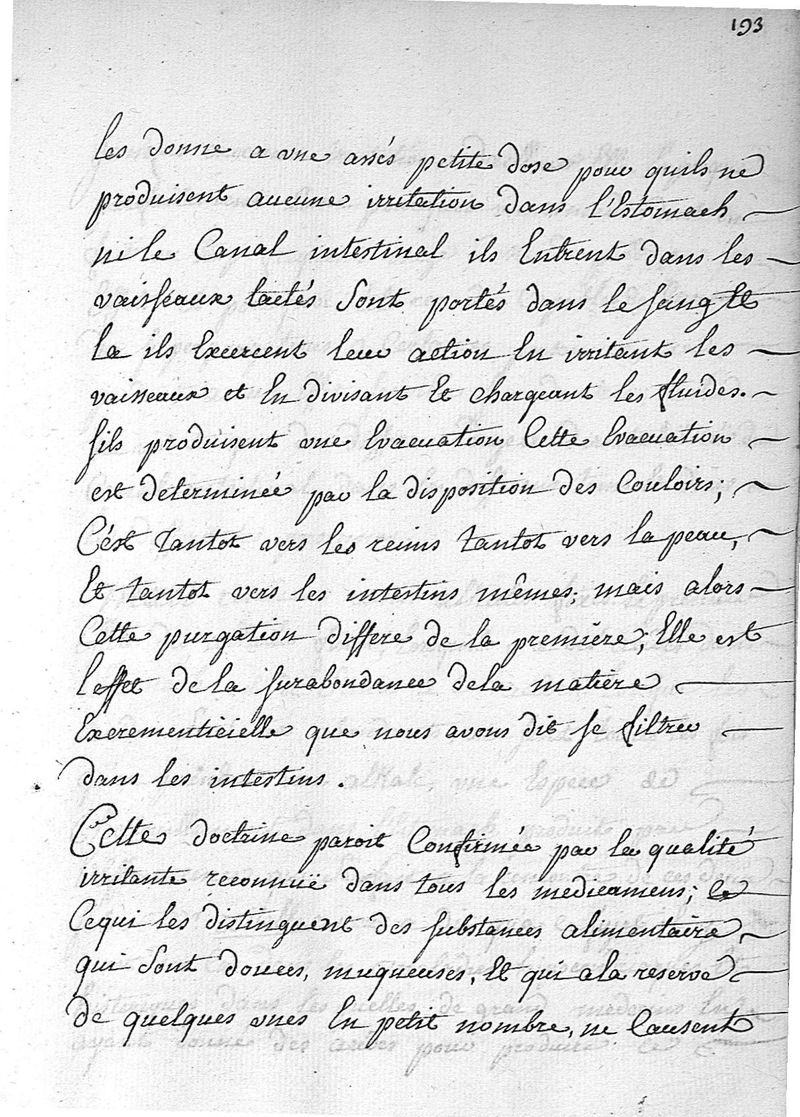 193
les donne a une assés petite dose pour quils ne
produisent aucune irritation dans l'Estomach
ni le Canal intestinal ils Entrent dans les
vaisseaux lactés Sont portés dans le sang Et
la ils Exercent leur action En irritant les
vaisseaux et En divisant Et chargeant les fluides.
sils produisent une Evacuation Cette Evacuation
est determinée par la disposition des Couloirs;
C'est tantot vers les reims tantot vers la peau,
Et tantot vers les intestins mêmes; mais alors
Cette purgation differe de la premiére; Elle est
l'effet de la surabondance dela matiére
Excrementicielle que nous avons dit se filtrer
dans les intestins.
Cette doctrine paroit Confirmée par la qualité
irritante reconnuë dans tous les medicamens; ce
Cequi les distinguent des substances alimentaire,
qui Sont douces, muqueuses, Et qui ala reserve
de quelques unes En petit nombre, ne Causent